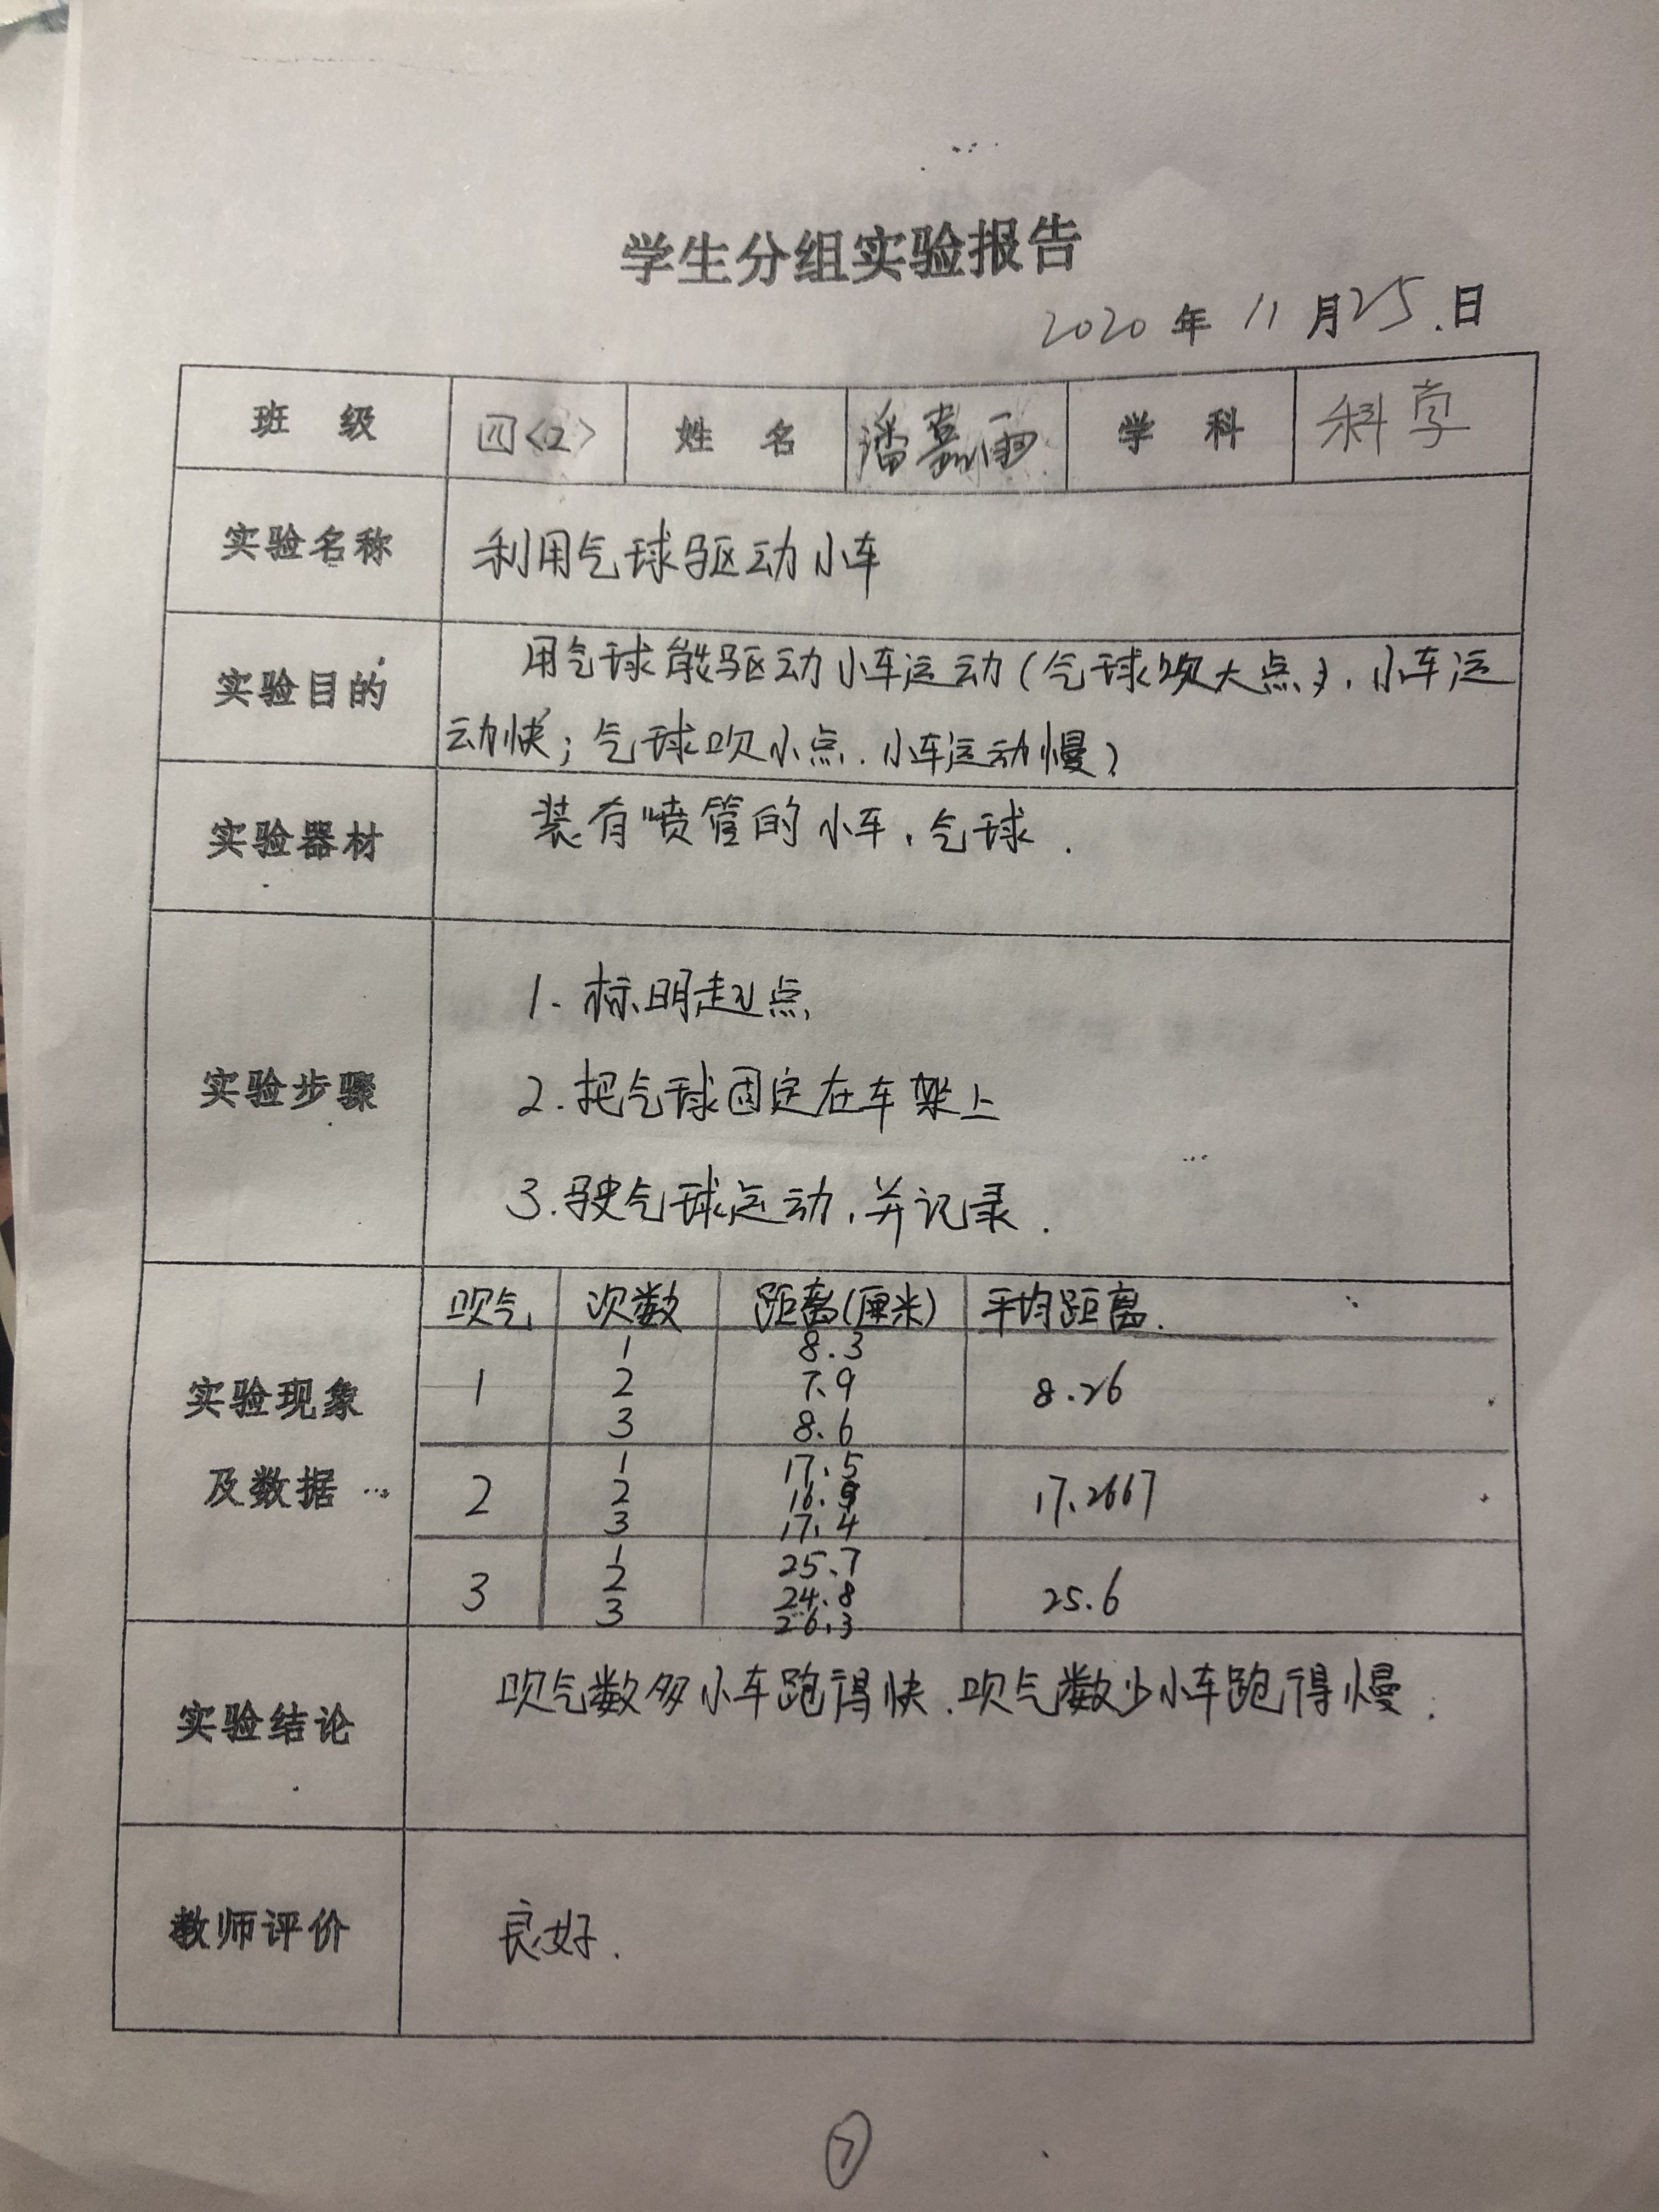 学生分组实验报告
2020年11月25日
班 级 四<2> 姓 名 潘嘉雨 学 科 科学
实验名称 利用气球驱动小车
实验目的 用气球能驱动小车运动(气球吹大点,小车运
动快;气球吹小点.小车运动慢)
实验器材 装有喷管的小车,气球.
实验步骤
1.标明起点
2.把气球固定在车架上
3.驶气球运动,并记录.
实验现象
及数据
吹气 次数 距离(厘米) 平均距离.
1 8.3
1 2 7.9 8.26
3 8.6
1 17.5
2 2 16.9 17.2667
3 17.4
1 25.7
3 2 24.8 25.6
3 26.3
实验结论 吹气数多小车跑得快.吹气数少小车跑得慢.
教师评价 良好.
7